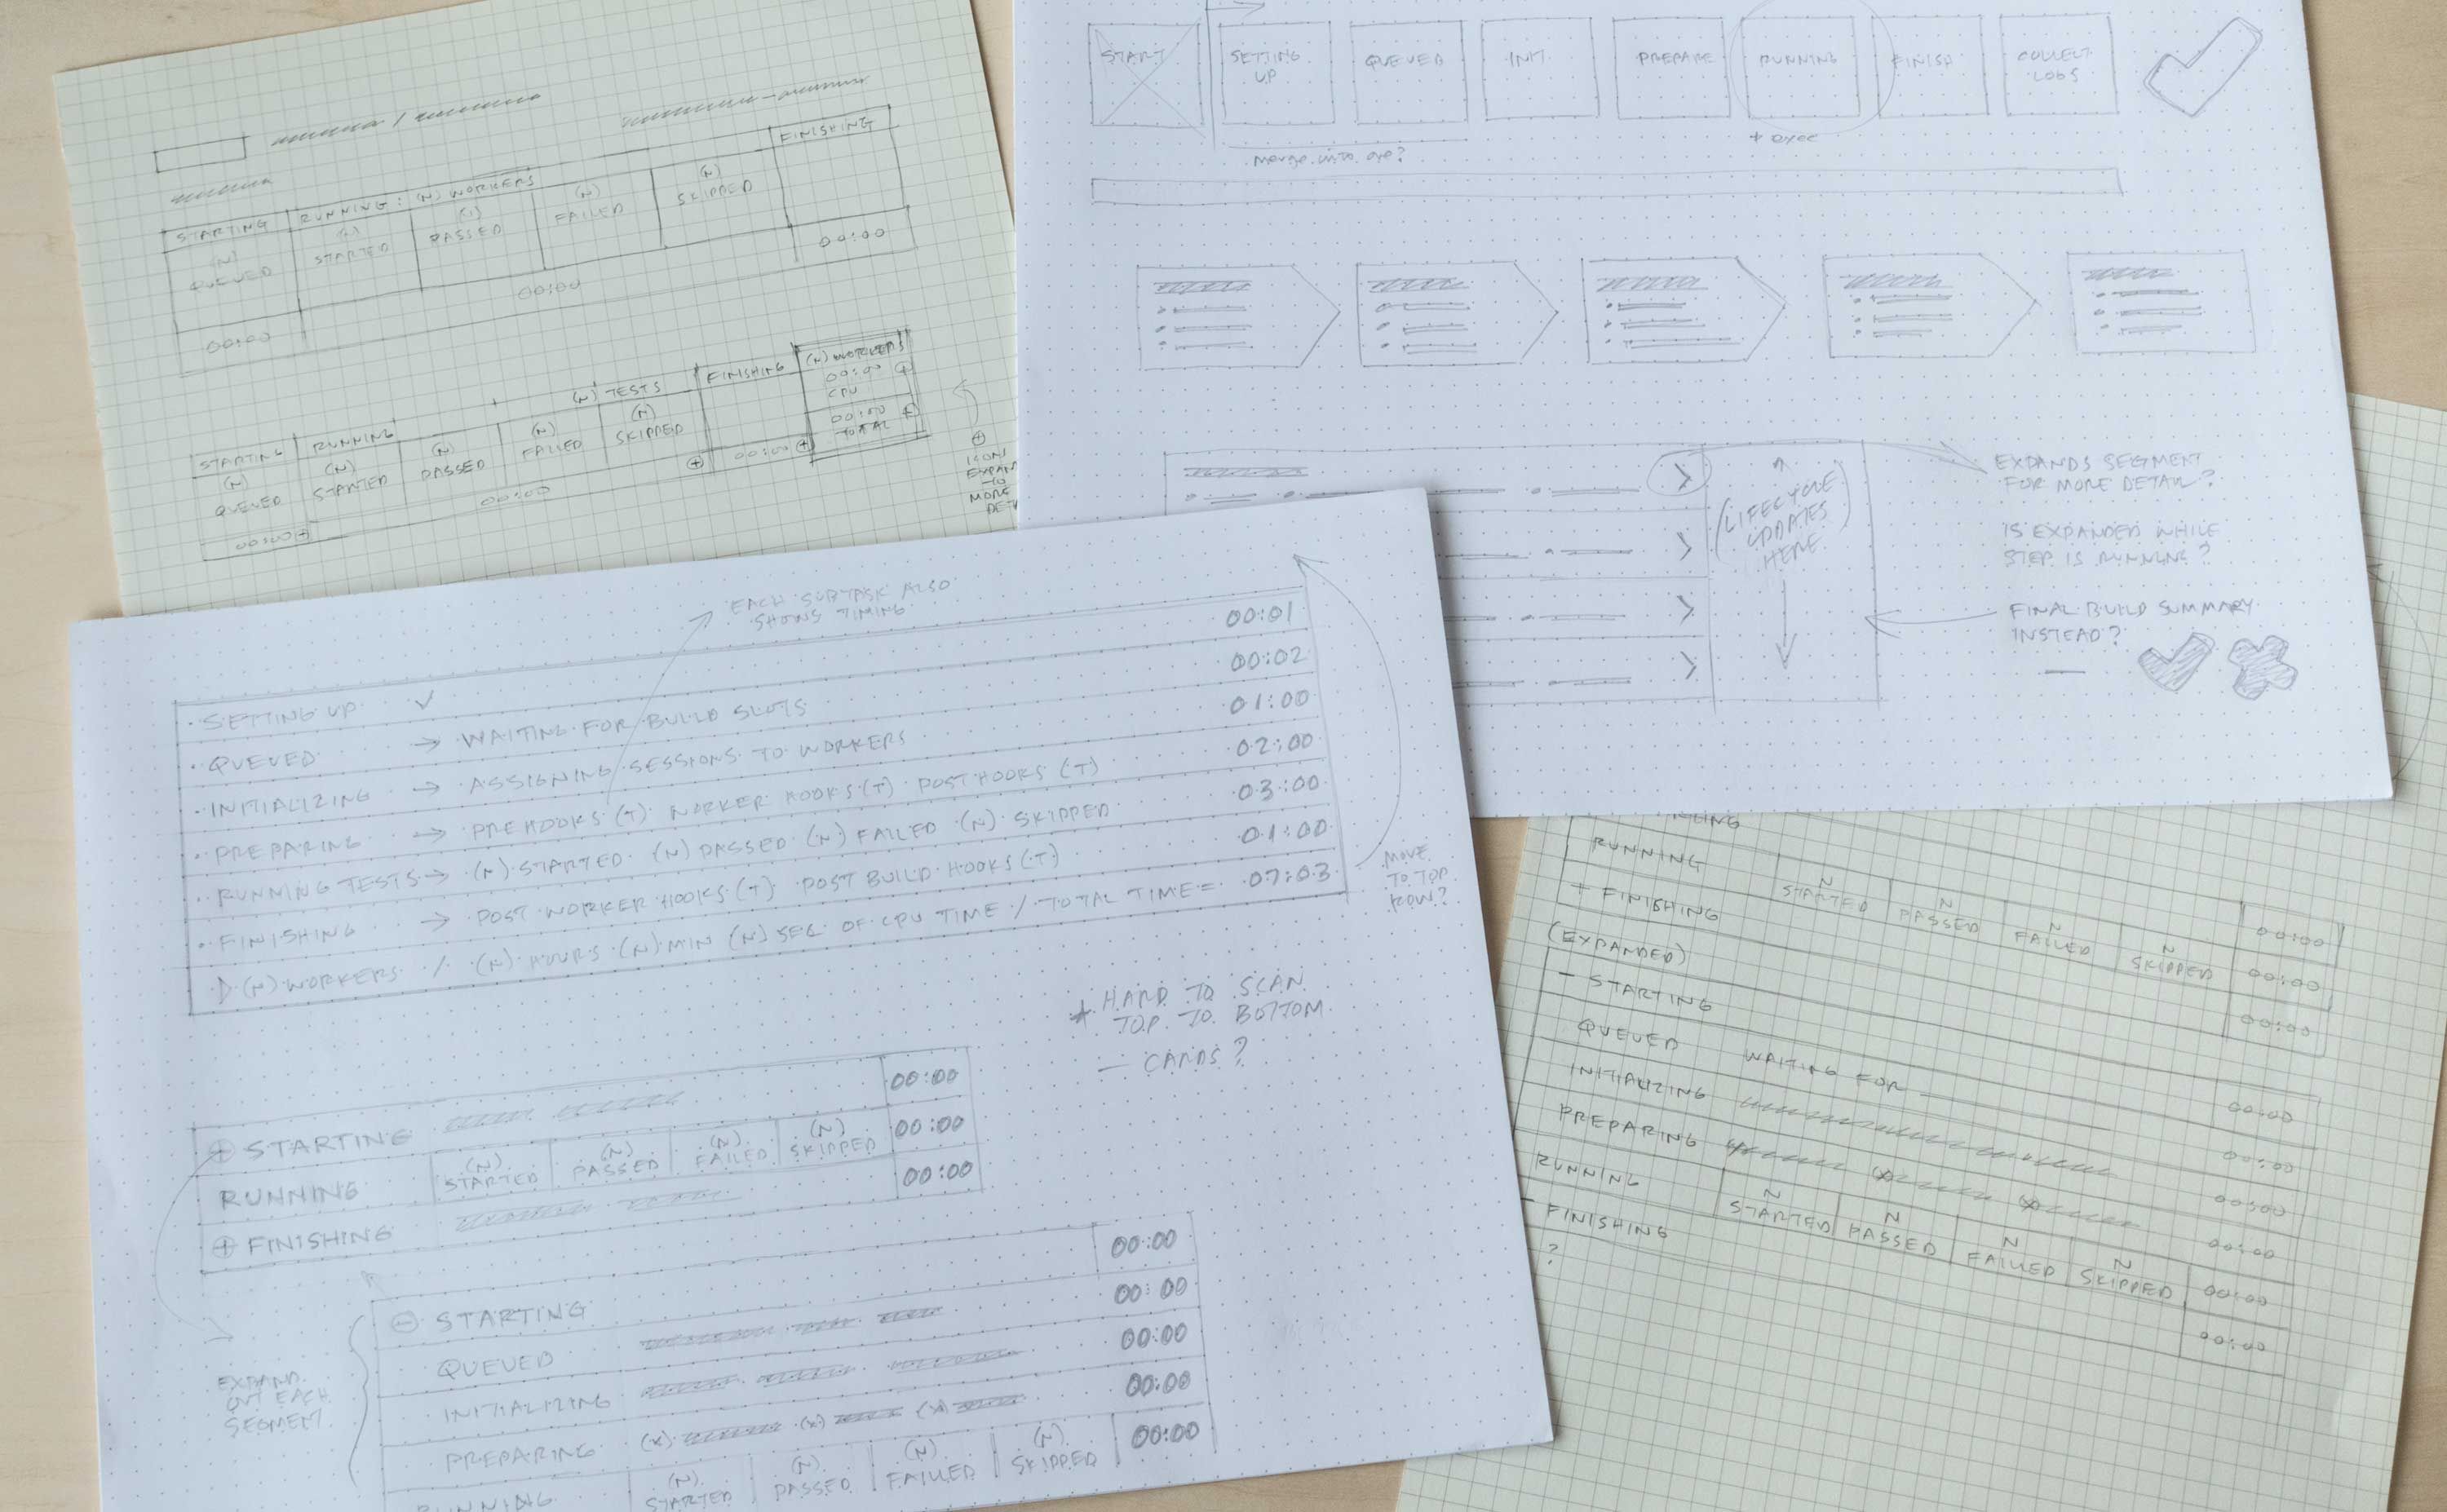 FINISHING
STARTING
RUNNING: (N) WORKERS
(N)
QUEUED
(N)
STARTED
(N)
PASSED
(N)
FAILED
(N)
SKIPPED
00:00
00:00
00:00
(N) TESTS
FINISHING
(N) WORKERS
00:00
CPU
00:00
TOTAL
STARTING
RUNNING
(N)
QUEUED
(N)
STARTED
(N)
PASSED
(N)
FAILED
(N)
SKIPPED
00:00
00:00
00:00
ICON
EXPAN
TO
MORE
DET
START
SETTING
UP
QUEUED
INIT
PREPARE
RUNNING
FINISH
COLLECT
LOGS
merge into one?
+ exec
(LIFECYCLE
UPDATES
HERE)
EXPANDS SEGMENT
FOR MORE DETAIL?
IS EXPANDED WHILE
STEP IS RUNNING?
FINAL BUILD SUMMARY
INSTEAD?
EACH SUBTASK ALSO
SHOWS TIMING
· SETTING UP ✓ 00:01
· QUEUED → WAITING FOR BUILD SLOTS 00:02
· INITIALIZING → ASSIGNING SESSIONS TO WORKERS 01:00
· PREPARING → PREHOOKS (T) WORKER HOOKS (T) POST HOOKS (T) 02:00
· RUNNING TESTS → (N) STARTED (N) PASSED (N) FAILED (N) SKIPPED 03:00
· FINISHING → POST WORKER HOOKS (T) POST BUILD HOOKS (T) 01:00
(N) WORKERS / (N) HOURS (N) MIN (N) SEC OF CPU TIME / TOTAL TIME = 07:03
MOVE
TO TOP
ROW?
* HARD TO SCAN
TOP TO BOTTOM
— CARDS?
+ STARTING 00:00
RUNNING
(N)
STARTED
(N)
PASSED
(N)
FAILED
(N)
SKIPPED
00:00
+ FINISHING 00:00
EXPAND
OUT EACH
SEGMENT
- STARTING 00:00
QUEUED 00:00
INITIALIZING 00:00
PREPARING (X) (X) (X) 00:00
RUNNING
(N)
STARTED
(N)
PASSED
(N)
FAILED
(N)
SKIPPED
00:00
RUNNING
N
STARTED
N
PASSED
N
FAILED
N
SKIPPED
00:00
00:00
+ FINISHING 00:00
(EXPANDED)
- STARTING 00:00
QUEUED WAITING FOR 00:00
INITIALIZING 00:00
PREPARING 00:00
RUNNING
N
STARTED
N
PASSED
N
FAILED
N
SKIPPED
00:00
- FINISHING 00:00
?